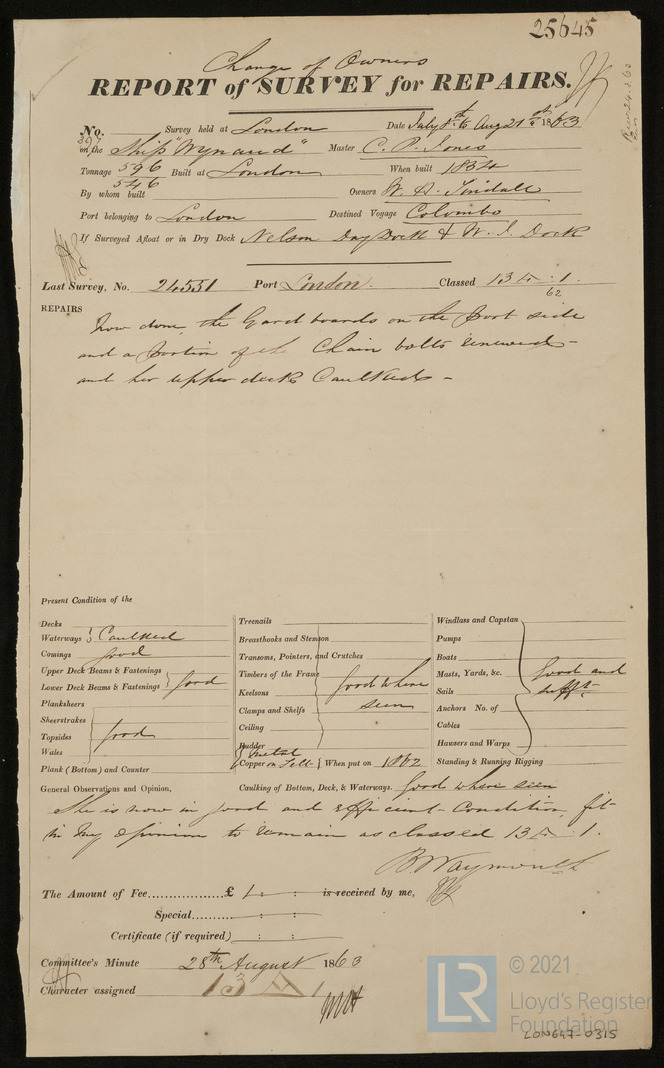 25645
Change of Owners
REPORT of SURVEY for REPAIRS.
No. Survey held at London Date July 1st to Aug 21st 1863
397
on the Ship "Wynaud" Master C. P. Jones
Tonnage 596 Built at London When built 1834
546
By whom built Owners W. H. Tindall
Port belonging to London Destined Voyage Colombo
If Surveyed Afloat or in Dry Dock Nelson Dry Dock & W. I. Dock
Last Survey, No. 24551 Port London. Classed 13 A 1.
62
REPAIRS now done, the Gard boards on the port side
and a portion of the Chain bolts renewed -
and her upper decks Caulked -
Present Condition of the
Decks
Waterways Caulked
Comings good
Upper Deck Beams & Fastenings
Lower Deck Beams & Fastenings good
Planksheers
Sheerstrakes
Topsides good
Wales
Plank (Bottom) and Counter
Treenails
Breasthooks and Stemson
Transoms, Pointers, and Crutches
Timbers of the Frame
Keelsons good where
Clamps and Shelfs seen
Ceiling
Rudder
Metal
Copper on Felt When put on 1862
Windlass and Capstan
Pumps
Boats
Masts, Yards, &c. good and
Sails sufft.
Anchors No. of
Cables
Hawsers and Warps
Standing & Running Rigging
General Observations and Opinion, Caulking of Bottom, Deck, & Waterways. good where seen
She is now in good and efficient Condition, fit
in my opinion to remain as classed 13 A 1.
B Waymouth
The Amount of Fee £ 1 : : is received by me,
Special : :
Certificate (if required) : :
Committee's Minute 28th August 1863
Character assigned 13 A 1
LR
© 2021
Lloyd's Register
Foundation
LON647-0315